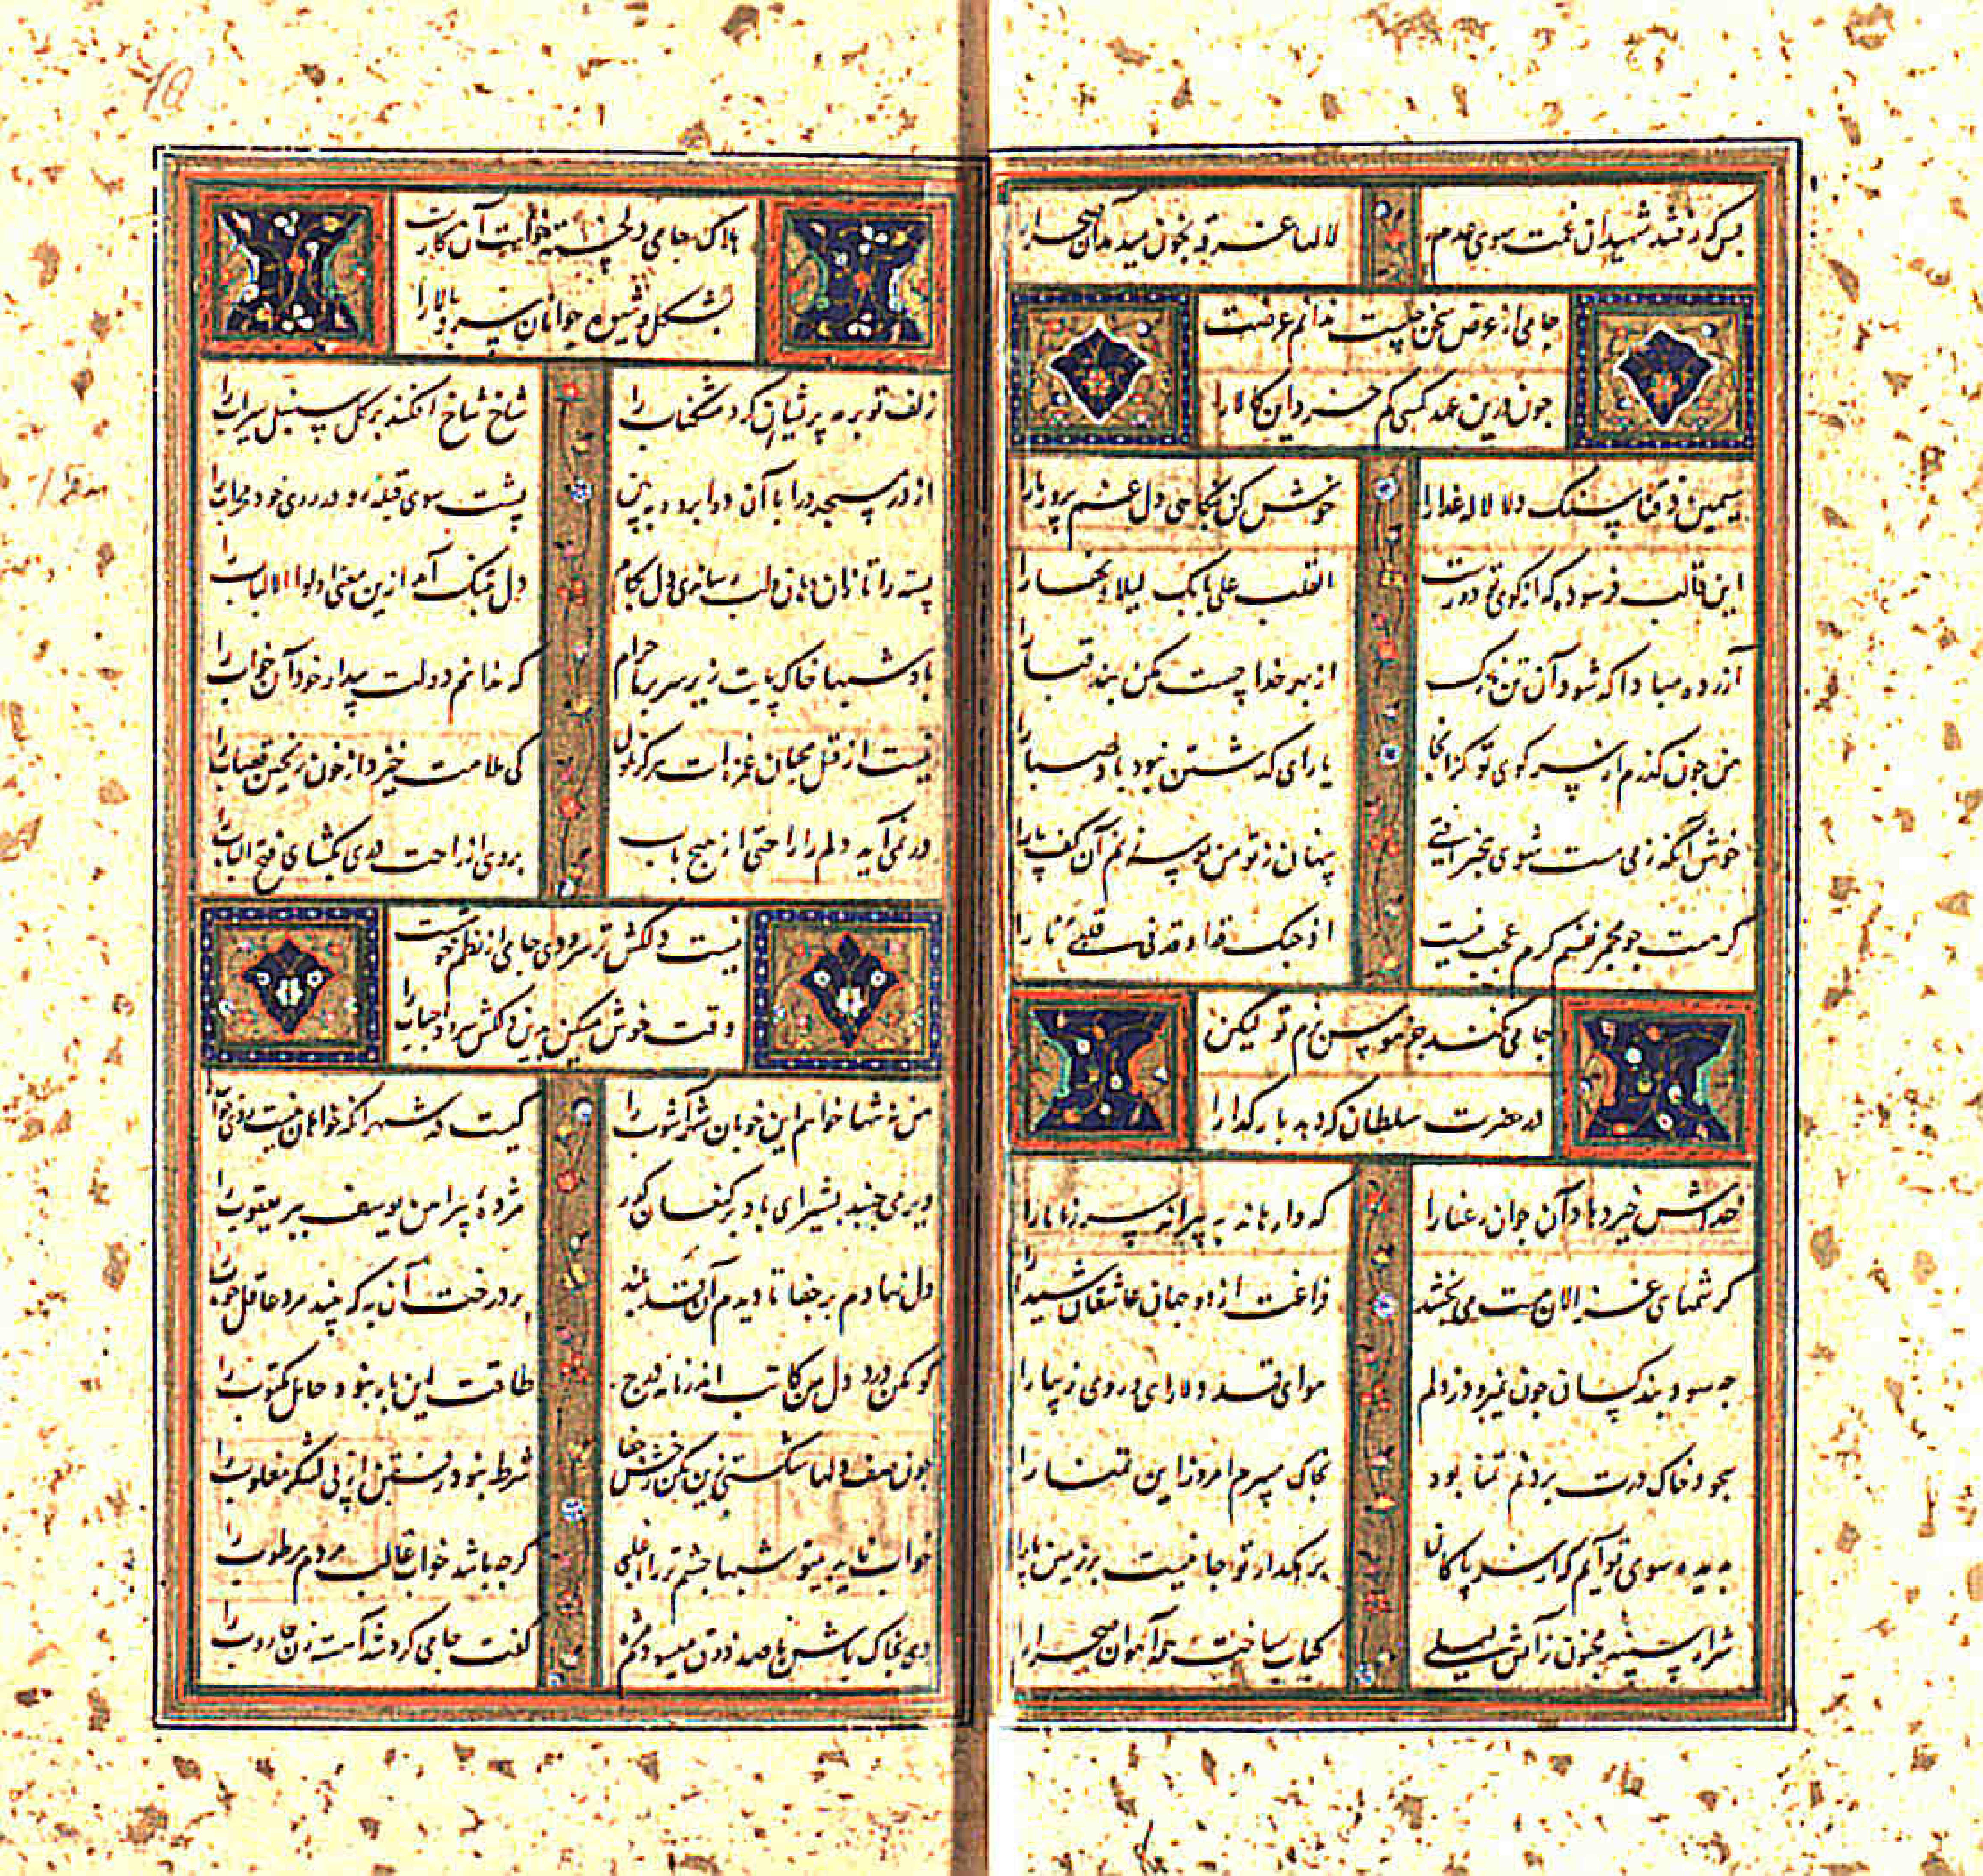 بس که رفتند شهیدان غمت سوی عدم
لالها غرقه بخون میدمد آن صحرا را
جامی از عرض سخن چیست ندانم غرضت
چون درین عهد کسی کم خرد این کالا را
سیمین ذقنا سنک دلا لاله عذارا
خوش کن بنکاهی دل غم پرور ما را
این قالب فرسوده که از کوی تو دورست
القلب علی بابک لیلا و نهارا
آزرده مبادا که شود آن تن نازک
از بهر خدا چست مکن بند قبا را
من چون کذرم از سر کوی تو کز آنجا
یارای کذشتن نبود باد صبا را
خوش آنکه ز می مست شوی بیخبر افتی
پنهان ز تو من بوسه زنم آن کف پا را
کر هست چو مجمر نفسم کرم عجب نیست
اذ حبک قد اوقد فی قلبی نارا
جامی نکند جز هوس بزم تو لیکن
در حضرت سلطان که دهد بار کدا را
خداش خیر دهاد آن جوان رعنا را
که وارهاند به پیرانه سر ز ما ما را
کرشمهای غزالان مست می بخشد
فراغت از دو جهان عاشقان شیدا را
چه سود پند کسان چون نمیرود ز دلم
هوای قد دلارای و روی زیبا را
سجود خاک درت بردنم تمنا بود
بخاک میبرم امروز این تمنا را
بدیده سوی تو آیم که از سر پاکان
برهکذار تو جا نیست بر زمین پا را
شرار سینه مجنون ز آتش لیلی
کباب ساخت همه آهوان صحرا را
هلاک جامی دلخسته خواست آن کارست
بشکل و شیوه جوانان سرو بالا را
زلف تو بر مه پریشان کرد مشکناب را
شاخ شاخ افکند بر کل سنبل سیراب را
از در مسجد درا با آن دو ابرو و ببین
پشت سوی قبله و در روی خود محراب را
پسته را تا زان دهان و لب رسانی دل بکام
دل بتنک آمد ازین معنی اولوا الالباب را
باد شبها خاک پایت زیر سر بر ما حرام
که ندانم دولت بیدار خود آن خواب را
نیست از قتل محبان غمزه ات هرکز ملول
کی ملامت خیزد از خون ریختن قصاب را
در نمی آید دلم را راحتی از هیچ باب
بر وی از راحت دری بکشای فتح الباب را
نیست دلکش تر سرودی جامی از نظم خوشت
وقت خوش میکن بدین دلکش سرود احباب را
من نه تنها خواهم این خوبان شهرآشوب را
کیست در شهر آنکه خواهان نیست روی خوب را
دیر می جنبد بشیر ای باد بر کنعان کذر
مژده پیراهن یوسف ببر یعقوب را
دل نهادم بر جفا تا دیدم آن قد بلند
بر درخت آن به که بیند مرد عاقل خوب را
کو مکن درد دل من کاتب اندر نامه درج
طاقت این بار نبود حامل مکتوب را
چون صف دلها شکستی زین مکن رخش جفا
شرط نبود رفتن از پی لشکر مغلوب را
خواب ناید بیتو شبها چشم تر را اغلبی
کرچه باشد خواب غالب مردم مرطوب را
دی بخاک راهش با صد ذوق میسودم مژه
کفت جامی کرد شد آهسته زن جاروب را